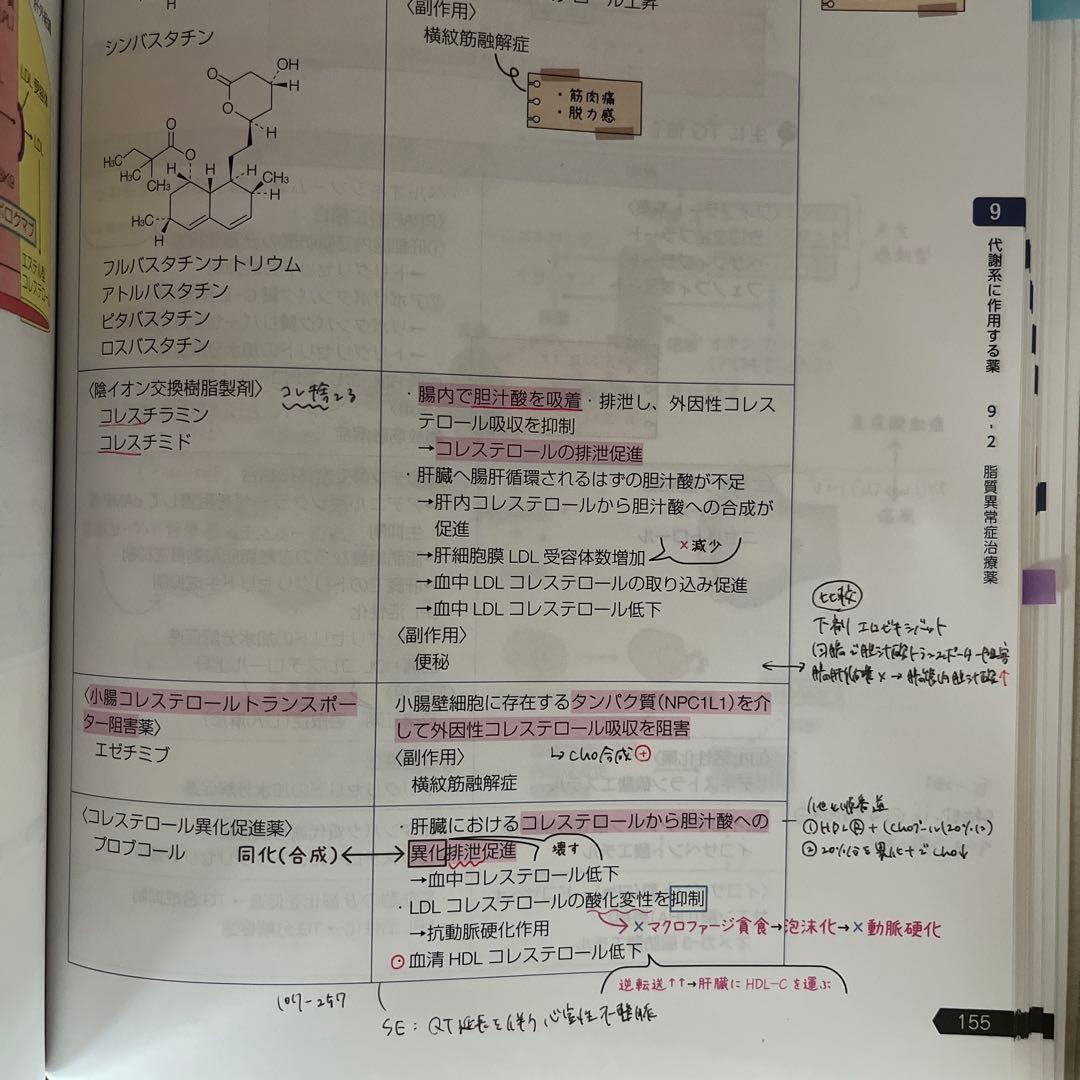 〈副作用〉
横紋筋融解症
・筋肉痛
・脱力感
シンバスタチン
OH
O
H
O
H
O
O
H₃C
H₃C
CH₃
H
H
H
CH₃
H
H₃C
H
フルバスタチンナトリウム
アトルバスタチン
ピタバスタチン
ロスバスタチン
〈陰イオン交換樹脂製剤〉 コレ捨てる
コレスチラミン
コレスチミド
・腸内で胆汁酸を吸着・排泄し、外因性コレス
テロール吸収を抑制
→コレステロールの排泄促進
・肝臓へ腸肝循環されるはずの胆汁酸が不足
→肝内コレステロールから胆汁酸への合成が
促進
→肝細胞膜 LDL 受容体数増加
×減少
→血中 LDL コレステロールの取り込み促進
→血中 LDL コレステロール低下
〈副作用〉
便秘
比較
下剤 エロビキシバット
回腸で胆汁酸トランスポーター阻害
〈小腸コレステロールトランスポー
ター阻害薬〉
エゼチミブ
小腸壁細胞に存在するタンパク質(NPC1L1)を介
して外因性コレステロール吸収を阻害
↳ cho合成⊕
〈副作用〉
横紋筋融解症
〈コレステロール異化促進薬〉
プロブコール
同化(合成)
・肝臓におけるコレステロールから胆汁酸への
異化排泄促進
壊す
→血中コレステロール低下
・LDL コレステロールの酸化変性を抑制
→抗動脈硬化作用
×マクロファージ貪食→泡沫化→×動脈硬化
血清 HDL コレステロール低下
逆転送↑↑→肝臓に HDL-C を運ぶ
107-257
SE: QT延長を伴う心室性不整脈
9
代謝系に作用する薬
9-2
脂質異常症治療薬
155
LDL受容体
LDL
エステル型
コレステロール